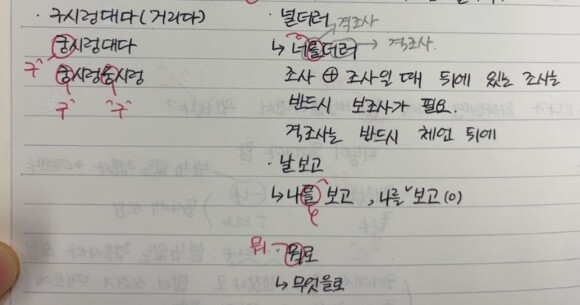 · 구시렁대다(거리다)
궁시렁대다
구
궁시렁궁시렁
구 구
· 널더러
격조사
↳ 너를더러 → 격조사
조사 ⊕ 조사일 때 뒤에 있는 조사는
반드시 보조사가 필요.
격조사는 반드시 체언 뒤에
· 날보고
↳ 나를 보고, 나를ˇ보고(o)
뭐 · 뭘로
↳ 무엇을로